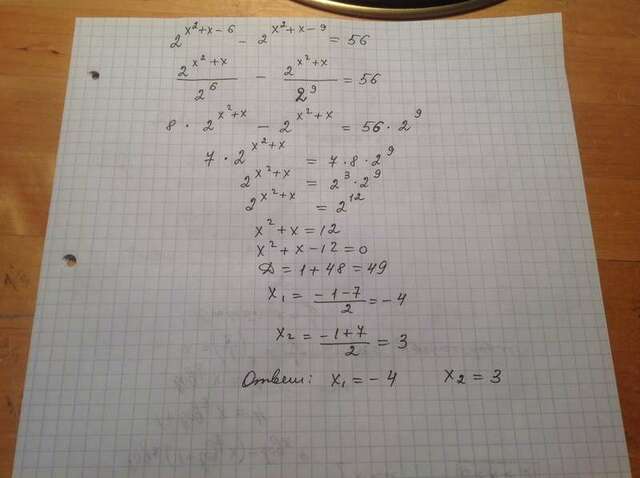 2^(x²+x-6) - 2^(x²+x-9) = 56
2^(x²+x)/2^6 - 2^(x²+x)/2^9 = 56
8 · 2^(x²+x) - 2^(x²+x) = 56 · 2^9
7 · 2^(x²+x) = 7 · 8 · 2^9
2^(x²+x) = 2^3 · 2^9
2^(x²+x) = 2^12
x² + x = 12
x² + x - 12 = 0
D = 1 + 48 = 49
x₁ = (-1-7)/2 = -4
x₂ = (-1+7)/2 = 3
Ответ: x₁ = -4 x₂ = 3